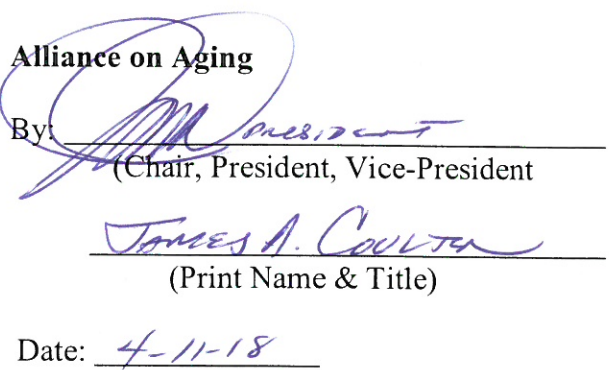 Alliance on Aging
By: President
(Chair, President, Vice-President
James A. Coulter
(Print Name & Title)
Date: 4-11-18